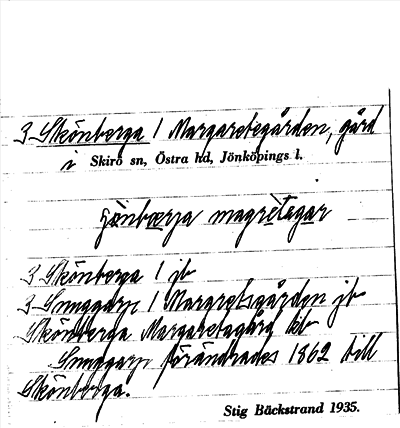 3 Skönberga 1 Margaretegården, gård
i Skirö sn, Östra hd, Jönköpings l.
magretegar
3 Skönberga 1 jb
3 Snuggarp 1 Margretsgården jb
Skönberga Margaretagård kb
Snuggarp förändrades 1862 till
Skönberga.
Stig Bäckstrand 1935.